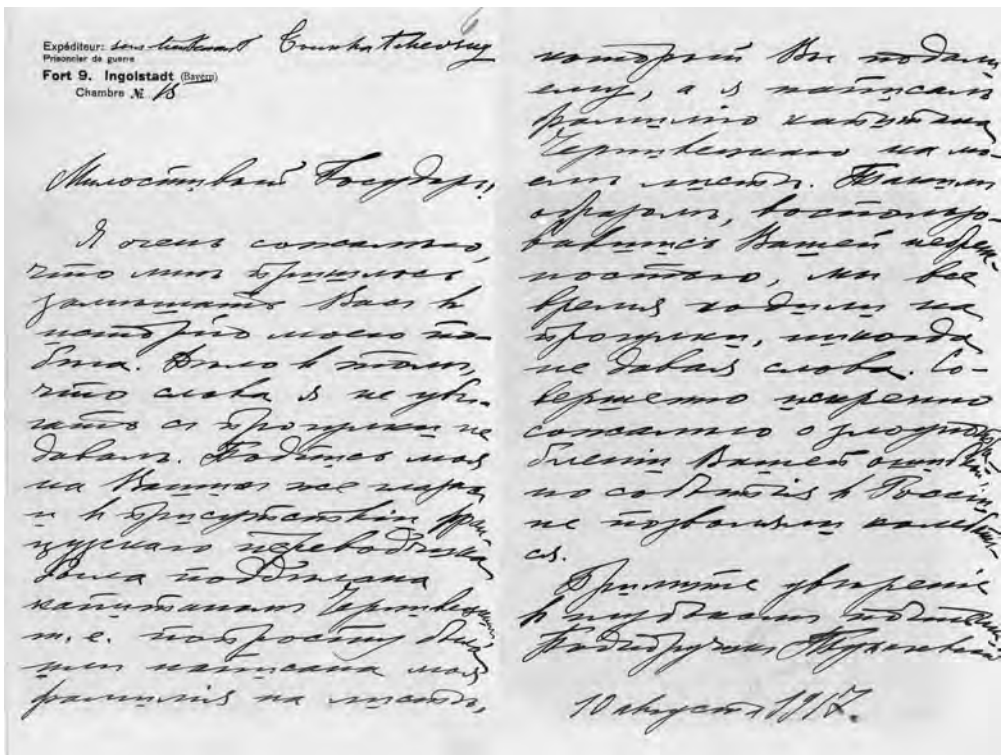 Expéditeur: sous-lieutenant Toukhatchevsky
Prisonnier de guerre
Fort 9. Ingolstadt (Bayern)
Chambre № 15
Милостивый Государь,
Я очень сожалѣю,
что мнѣ пришлось
замѣшать Васъ въ
исторію моего по-
бѣга. Дѣло въ томъ,
что слова я не убѣ-
гать съ прогулки не
давалъ. Подпись моя
на Вашихъ же глаза
и въ присутствіи фран-
цузскаго переводчика
была поддѣлана
капитаномъ
т. е. попросту была
имъ написана моя
фамилія на листѣ,
который Вы подали
ему, а я написалъ
фамилію капитана
Чернивецкаго на мо-
емъ листѣ. Такимъ
образомъ, воспользо-
вавшись Вашей небреж-
ностью, мы все
время ходили на
прогулки, никогда
не давая слова. Со-
вершенно искренно
сожалѣю о злоупотре-
бленіи Вашей ошибкой,
но событія въ Россіи
не позволяли колебать-
ся.
Примите увѣреніе
въ глубокомъ почтеніи
Подпоручикъ Тухачевскій
10 августа 1917.